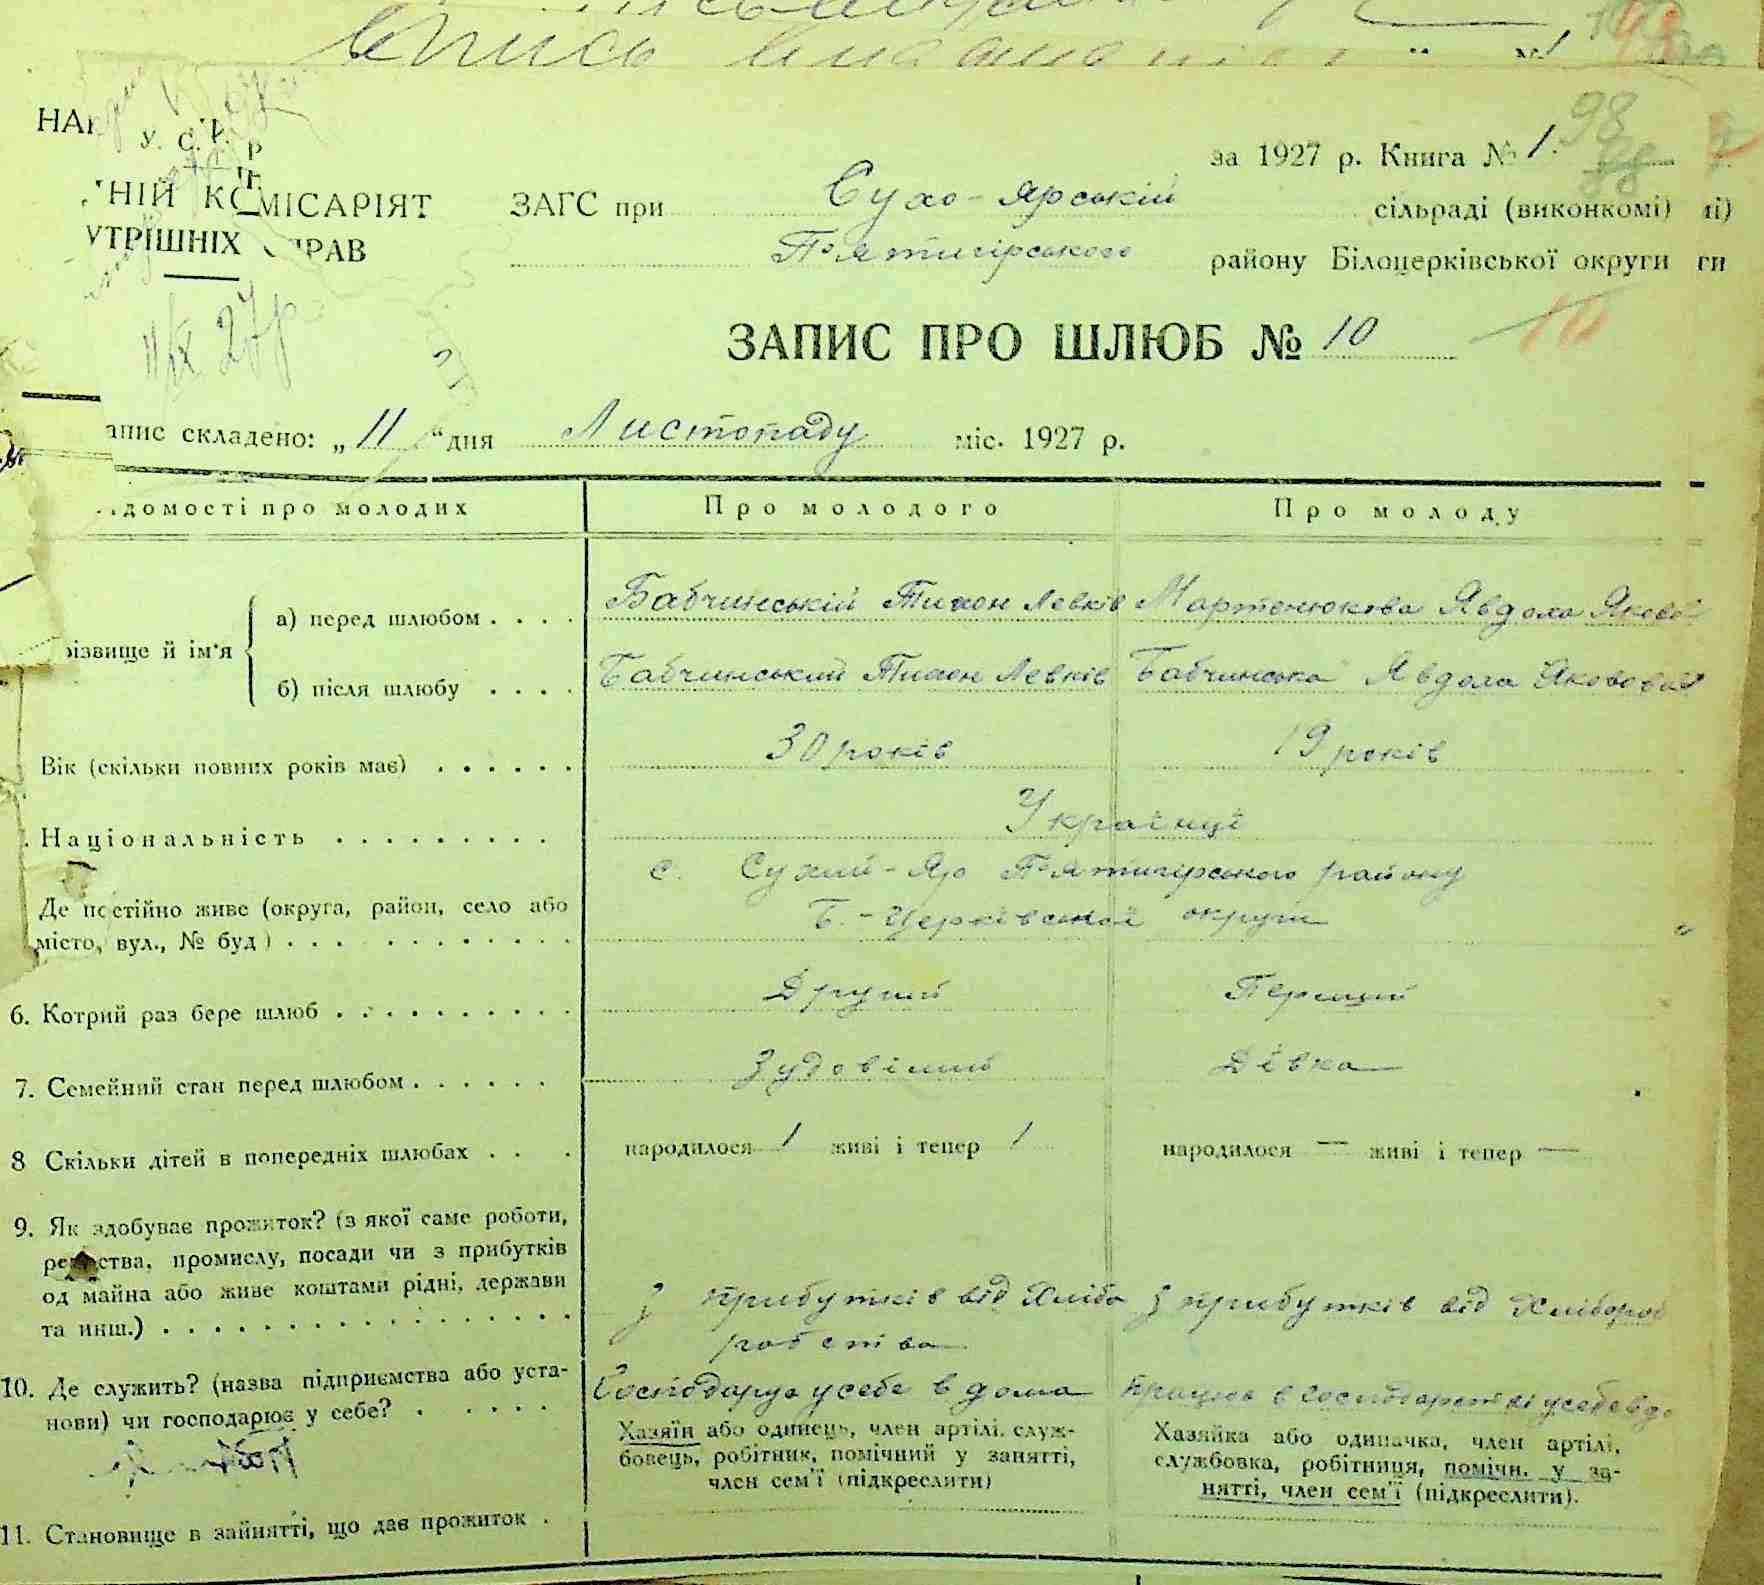 за 1927 р. Книга № 1. 98
У. С. Р. Р.
НІЙ КОМІСАРІЯТ
УТРІШНІХ СПРАВ
ЗАГС при Сухо-Ярській сільраді (виконкомі)
П'ятигірського району Білоцерківської округи
ЗАПИС ПРО ШЛЮБ № 10
11/IX 27 р.
апис складено: „11“ дня Листопаду міс. 1927 р.
ідомості про молодих Про молодого Про молоду
різвище й ім'я
а) перед шлюбом . . . . Бабчинській Тихон Левків Мартенюкова Явдоха Якові
б) після шлюбу . . . . Бабчинський Тихон Левків Бабчинська Явдоха Яковова
Вік (скільки повних років має) . . . . . . 30 років 19 років
Національність . . . . . . . . . Українці
Де постійно живе (округа, район, село або місто, вул., № буд) . . . . . . . . . . . .
с. Сухий-Яр П'ятигірського району
Б.-Церківської округи
6. Котрий раз бере шлюб . . . . . . . . . . Другий Перший
7. Семейний стан перед шлюбом . . . . . . Зудовілий Дівка
8 Скільки дітей в попередніх шлюбах . . . народилося 1 живі і тепер 1 народилося — живі і тепер —
9. Як здобуває прожиток? (з якої саме роботи,
ремества, промислу, посади чи з прибутків
од майна або живе коштами рідні, держави
та инш.) . . . . . . . . . . . . . . . . .
З прибутків від Хлібо
робства
З прибутків від Хлібороб
10. Де служить? (назва підприємства або уста-
нови) чи господарює у себе? . . . . . .
Господарує у себе в дома
працює в господарстві у себе вдо
Хазяїн або одинець, член артілі, служ-
бовець, робітник, помічний у занятті,
член сем'ї (підкреслити)
Хазяйка або одиначка, член артілі,
службовка, робітниця, помічн. у за-
нятті, член сем'ї (підкреслити).
11. Становище в зайнятті, що дає прожиток .